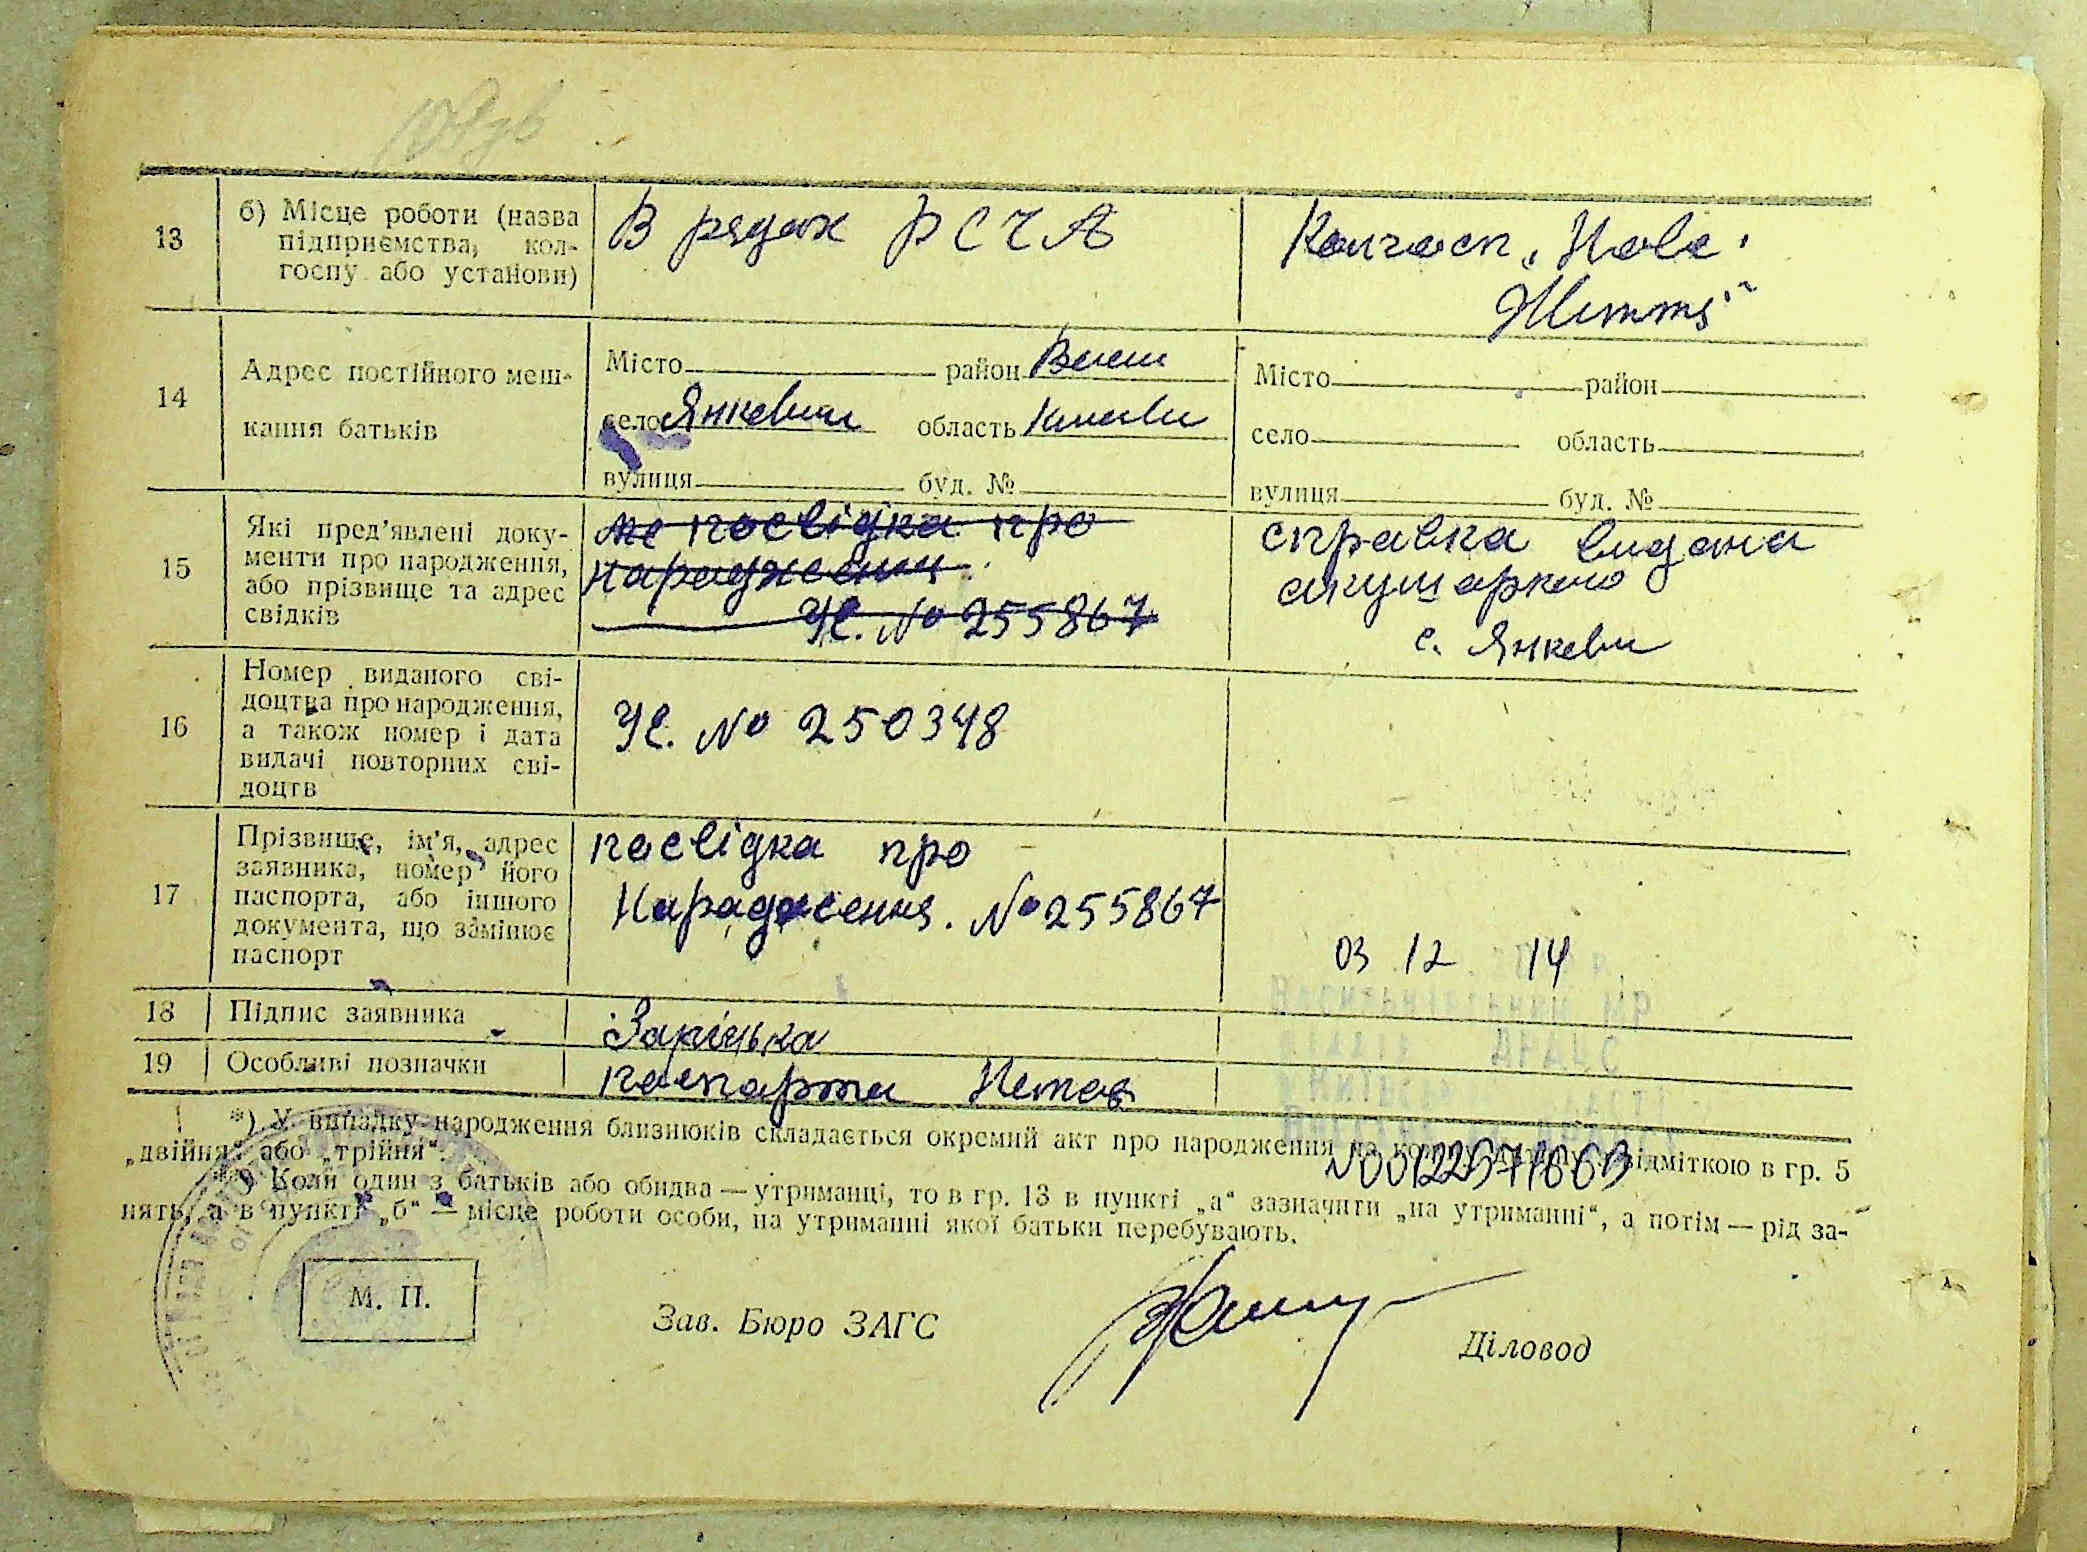 13
б) Місце роботи (назва
підприємства, кол-
госпу або установи)
В рядах РСЧА
Колгосп „Нове
Життя"
14
Адрес постійного меш-
кання батьків
Місто район
село Янкевичі область Києвсь
вулиця буд. №
Місто район
село область
вулиця буд. №
15
Які пред'явлені доку-
менти про народження,
або прізвище та адрес
свідків
посвідка про
народження
УЄ. № 255867
справка видана
акушеркою
с. Янкеви
16
Номер виданого сві-
доцтва про народження,
а також номер і дата
видачі повторних сві-
доцтв
УЄ. № 250348
17
Прізвище, ім'я, адрес
заявника, номер його
паспорта, або іншого
документа, що замінює
паспорт
посвідка про
Народження. № 255867
03 12 14
18
Підпис заявника
Заріцька
19
Особливі позначки
паспорта Немає
*) У випадку народження близнюків складається окремий акт про народження на кожну дитину з відміткою в гр. 5
„двійня" або „трійня".
**) Коли один з батьків або обидва — утриманці, то в гр. 13 в пункті „а" зазначити „на утриманні", а потім — рід за-
нять, а в пункті „б" — місце роботи особи, на утриманні якої батьки перебувають.
М. П.
Зав. Бюро ЗАГС
Діловод